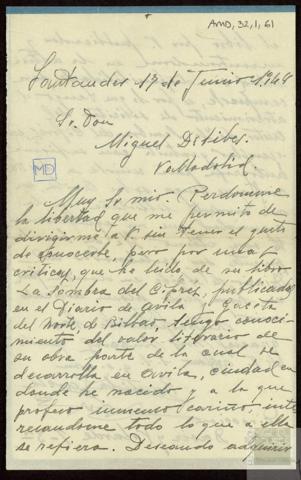 AMD, 32, 1, 61
Santander 17 de Junio 1948
Sr. Don
Miguel Delibes.
Valladolid.
MD
Muy Sr mio: Perdoneme
la libertad que me permito de
dirigirme a V. sin tener el gusto
de conocerle, pero por unas
criticas, que he leido, de su libro
La sombra del Cipres, publicadas
en el Diario de Avila y Gaceta
del Norte, de Bilbao, tengo conoci-
miento del valor literario de
su obra parte de la cual se
desarrolla en Avila, ciudad en
donde he nacido y a la que
profeso inmenso cariño, inte
resandome todo lo que a ella
se refiera. Deseando adquirir